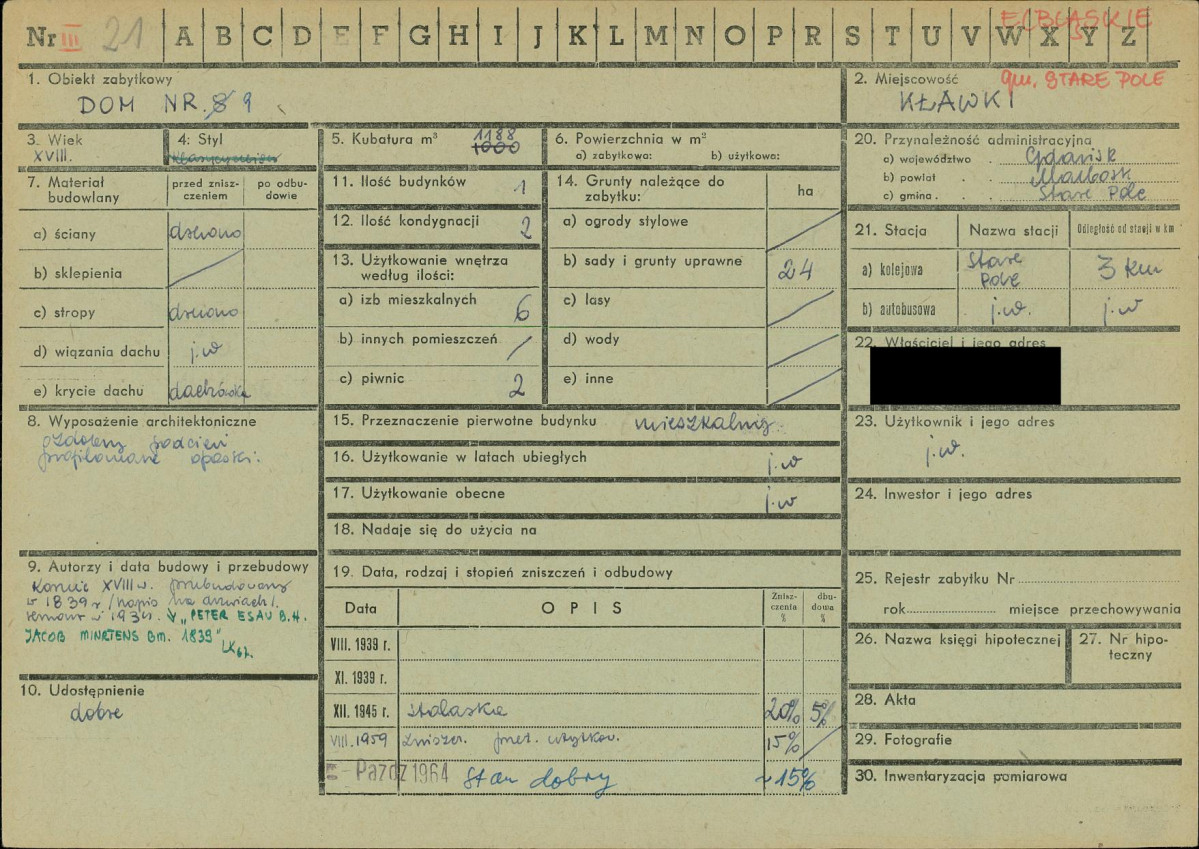 Nr III 21 A B C D E F G H I J K L M N O P R S T U V W X Y Z
ELBLĄSKIE
gm. STARE POLE
1. Obiekt zabytkowy
DOM NR. 8 9
2. Miejscowość
KŁAWKI
3. Wiek
XVIII.
4: Styl
5. Kubatura m³ 1188
1000
6. Powierzchnia w m²
a) zabytkowa: b) użytkowa:
7. Materiał budowlany
przed zniszczeniem
po odbudowie
a) ściany drewno
b) sklepienia
c) stropy drewno
d) wiązania dachu j.w
e) krycie dachu dachówka
8. Wyposażenie architektoniczne
ozdobny podcień
profilowane opaski.
9. Autorzy i data budowy i przebudowy
Koniec XVIII w. przebudowany
w 1839 r /napis na drzwiach/.
remont w 193 r. "PETER ESAU B.H.
JACOB MINRTENS BM. 1839"
LK 67.
10. Udostępnienie
dobre
11. Ilość budynków 1
12. Ilość kondygnacji 2
13. Użytkowanie wnętrza
według ilości:
a) izb mieszkalnych 6
b) innych pomieszczeń /
c) piwnic 2
14. Grunty należące do
zabytku: ha
a) ogrody stylowe
b) sady i grunty uprawne 24
c) lasy
d) wody
e) inne
15. Przeznaczenie pierwotne budynku mieszkalny.
16. Użytkowanie w latach ubiegłych j.w
17. Użytkowanie obecne j.w
18. Nadaje się do użycia na
19. Data, rodzaj i stopień zniszczeń i odbudowy
Data
OPIS
Zniszczenia %
dbudowa %
VIII. 1939 r.
XI. 1939 r.
XII. 1945 r. 20% 5%
VIII. 1959 zniszcz. przez użytkow. 15%
Paźdz 1964 Stan dobry ~15%
20. Przynależność administracyjna
a) województwo . Gdańsk
b) powiat . . Malbork
c) gmina . . . Stare Pole
21. Stacja
Nazwa stacji
Odległość od stacji w km
a) kolejowa Stare Pole 3 km
b) autobusowa j.w. j.w
22. Właściciel i jego adres
23. Użytkownik i jego adres
j.w.
24. Inwestor i jego adres
25. Rejestr zabytku Nr
rok miejsce przechowywania
26. Nazwa księgi hipotecznej
27. Nr hipoteczny
28. Akta
29. Fotografie
30. Inwentaryzacja pomiarowa